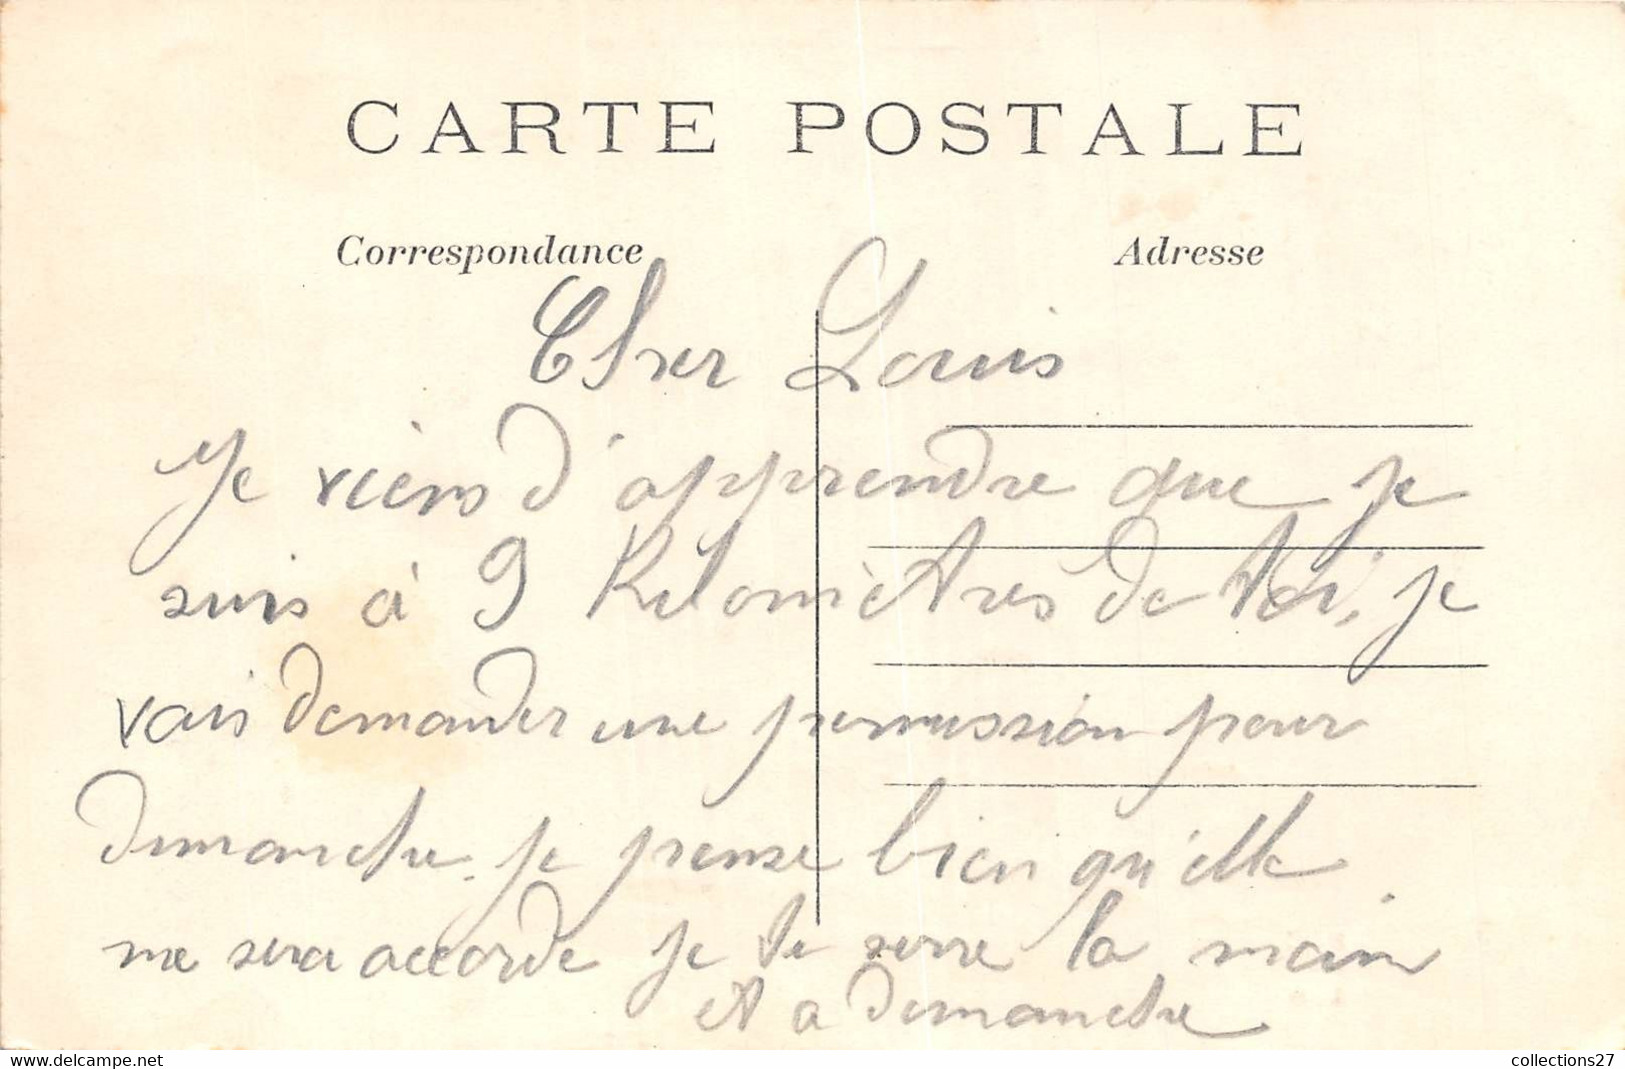 CARTE POSTALE
Correspondance
Adresse
Cher Louis
Je viens d'apprendre que je
suis à 9 Kilomètres de toi, je
vais demander une permission pour
dimanche. je pense bien qu'elle
me sera accorde je te serre la main
et a dimanche
delcampe.net
collections27